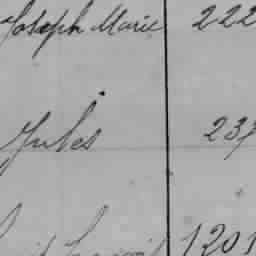 Joseph Marie 222
Jules 23
1201